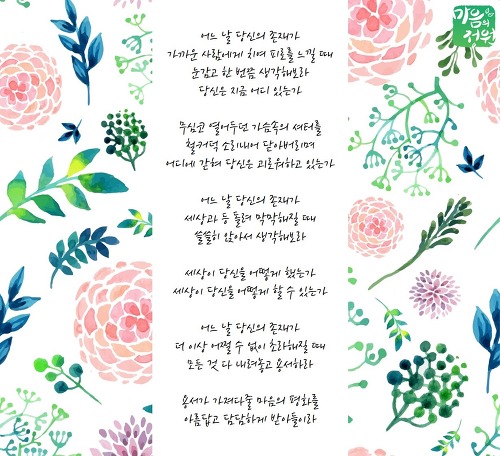 마음의
정원
어느 날 당신의 존재가
가까운 사람에게 치여 피로를 느낄 때
눈감고 한 번쯤 생각해보라
당신은 지금 어디 있는가
무심코 열어두던 가슴속의 셔터를
철커덕 소리내어 닫아버리며
어디에 갇혀 당신은 괴로워하고 있는가
어느 날 당신의 존재가
세상과 등 돌려 막막해질 때
쓸쓸히 앉아서 생각해보라
세상이 당신을 어떻게 했는가
세상이 당신을 어떻게 할 수 있는가
어느 날 당신의 존재가
더 이상 어쩔 수 없이 초라해질 때
모든 것 다 내려놓고 용서하라
용서가 가져다줄 마음의 평화를
아름답고 담담하게 받아들이라